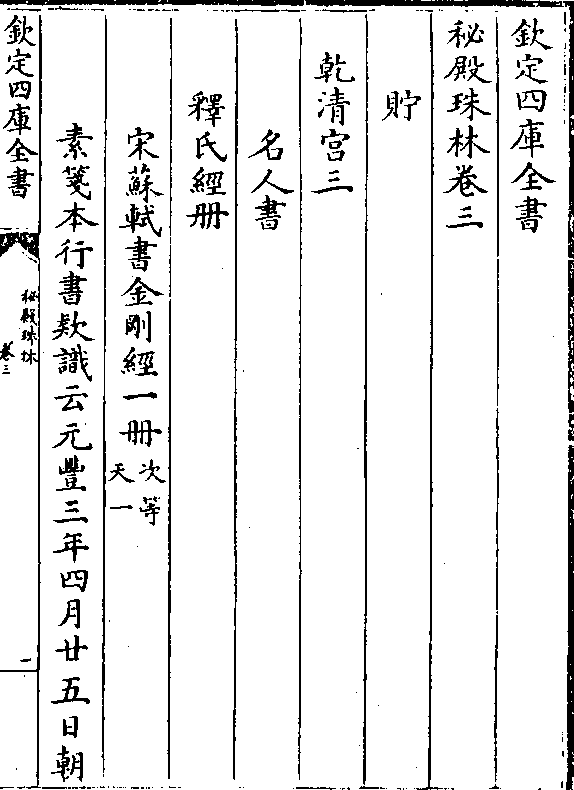 欽定四庫全書
秘殿珠林卷三
貯
乾清宫三
名人書
釋氏經册
宋蘇軾書金剛經一册次等天一
素箋本行書欵識云元豐三年四月廿五日朝
欽定四庫全書
秘殿珠林
卷三
一